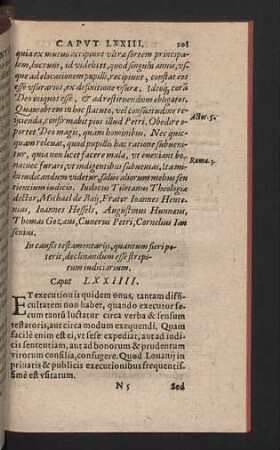 CAPVT LXXIII. 201
quia ex mutuo accipiunt vltra sortem principalem,
lucrum, id videlicet, quod singulis annis, vsque
ad elocationem pupilli, recipiunt, constat eos
esse vsurarios, ex definitione vsuræ. Ideoq́; corã
Deo iniquos esse, & ad restituendum obligatos.
Quamobrem in hoc statuto, vel consuetudine reijcienda,
confirmabit pios illud Petri, Obedire oportet
Deo magis, quam hominibus. Nec quicquam
releuat, quod pupillis hac ratione subuenitur,
quia non licet facere mala, vt eueniant bona:
nec furari, vt indigentibus subueniat, tametsi
iudicandum videtur, saluo aliorum melius sentientium
iudicio. Iudocus Tiletanus Theologiæ
doctor, Michael de Baij, Frater Ioannes Hentonius,
Ioannes Hessels, Augustinus Hunnæus,
Thomas Gozæus, Cunerus Petri, Cornelius Iansenius.
Actor. 5.
Roma. 3.
In causis testamentarijs, quantum fieri poterit,
declinandum esse strepitum
iudiciarium.
Caput LXXIIII.
ET executionis quidem onus, tantam difficultatem
non habet, quando executor secum
tantũ luctatur circa verba & sensum
testatoris, aut circa modum exequendi. Quam
facilè enim est ei, vt sese expediat, aut ad iudicis
sententiam, aut ad bonorum & prudentum
virorum consilia, confugere. Quod Louanij in
priuatis & publicis executionibus frequentissimè
est vsitatum.
N 5 Sed